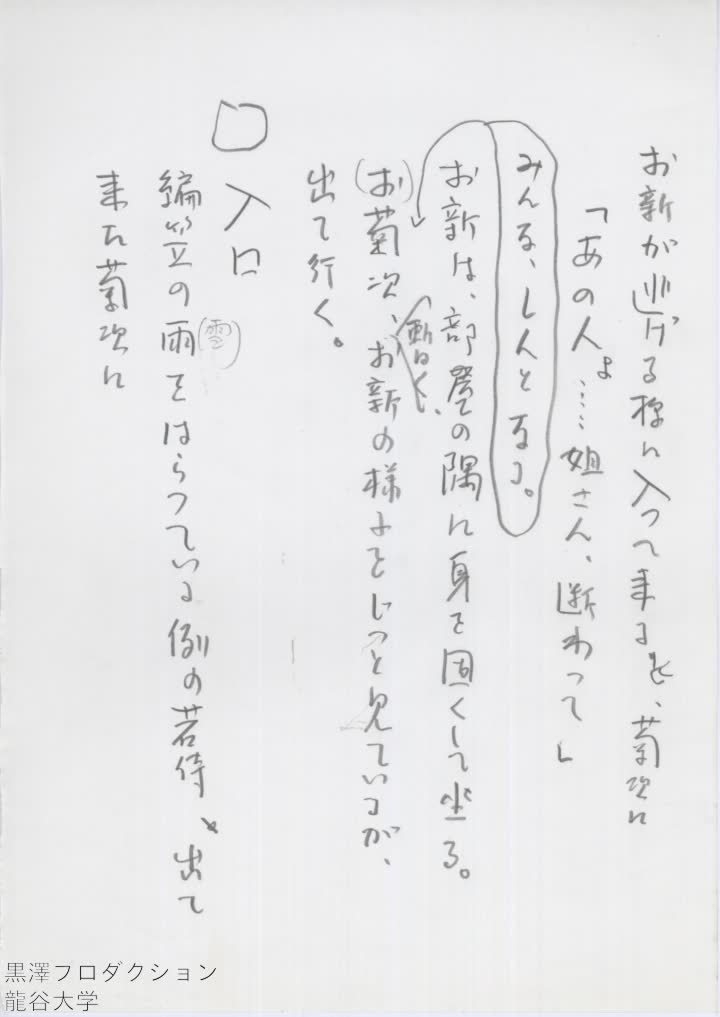 お新が逃げる様に入って来ると、菊次に
「あの人よ……姐さん、断わって」
みんな、しんとなる。
お新は、部屋の隅に身を固くして坐る。
(お)菊次、暫く、お新の様子をじっと見ているが、
出て行く。
□ 入口
編笠の雨(雪)をはらっている例の若侍、出て
来た菊次に
黒澤プロダクション
龍谷大学